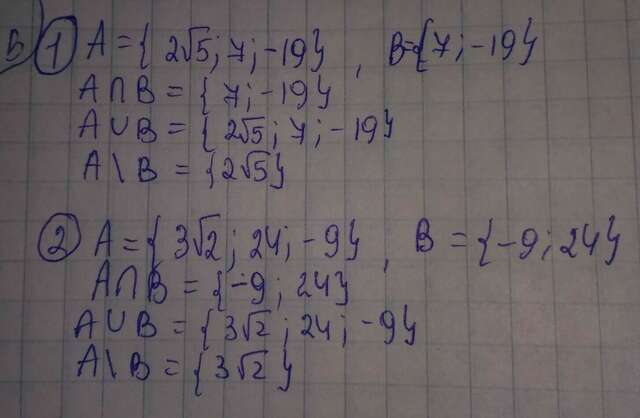 В) 1 A = { 2√5; 7; -19}, B={7; -19}
A∩B = {7; -19}
A∪B = {2√5; 7; -19}
A\B = {2√5}
2 A = { 3√2; 24; -9}, B = {-9; 24}
A∩B = {-9; 24}
A∪B = {3√2; 24; -9}
A\B = {3√2}